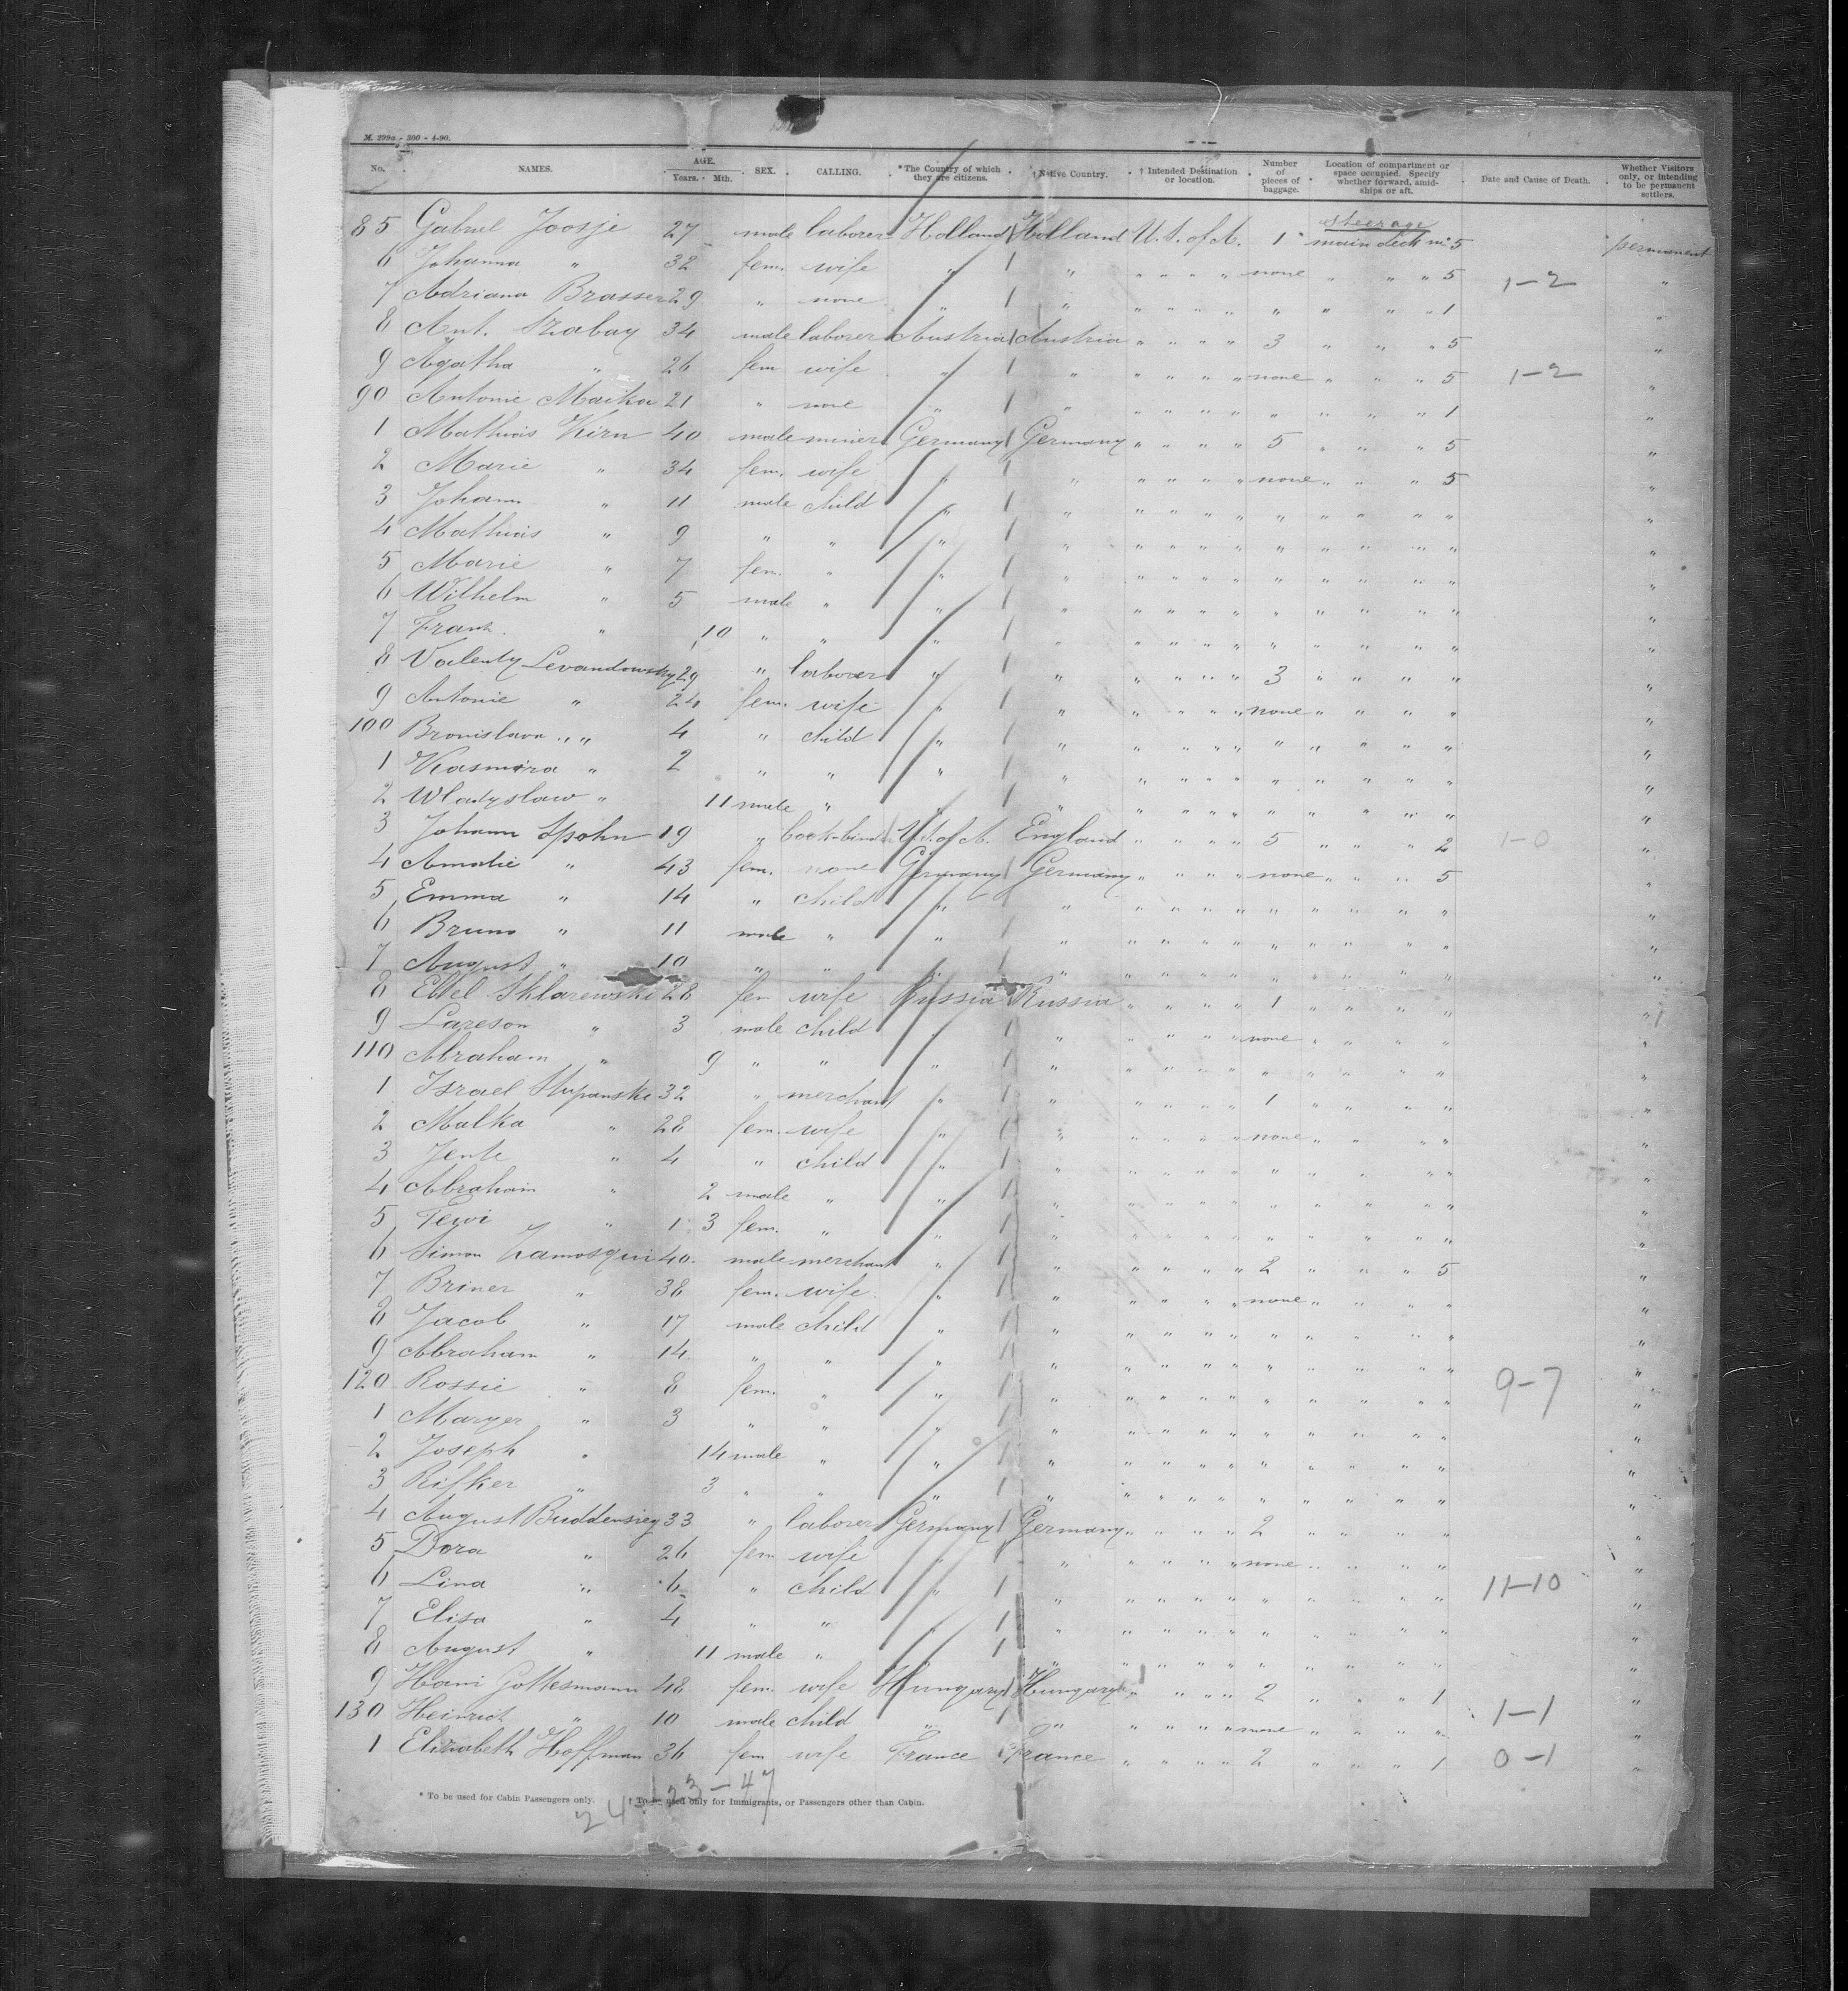 M. 299a - 300 - 4-90.
No. NAMES. AGE. Years. Mth. SEX. CALLING. *The Country of which they are citizens. †Native Country. † Intended Destination or location. Number of pieces of baggage. Location of compartment or space occupied. Specify whether forward, amidships or aft. Date and Cause of Death. Whether Visitors only, or intending to be permanent settlers.
steerage
85 Gabriel Joosje 27 male laborer Holland Holland U.S. of A. 1 main deck No 5 permanent
6 Johanna " 32 fem. wife " " " " " " none " " " 5 1-2 "
7 Adriana Brasser 29 " none " " " " " " " " " " 1 "
8 Ant. Szabay 34 male laborer Austria Austria " " " " 3 " " " 5 "
9 Agatha " 26 fem wife " " " " " " none " " " 5 1-2 "
90 Antonie Maika 21 " none " " " " " " " " " " 1 "
1 Mathias Kirn 40 male miner Germany Germany " " " " 5 " " " 5 "
2 Marie " 34 fem. wife " " " " " " none " " " 5 "
3 Johann " 11 male child " " " " " " " " " " " "
4 Mathias " 9 " " " " " " " " " " " " " "
5 Marie " 7 fem. " " " " " " " " " " " " "
6 Wilhelm " 5 male " " " " " " " " " " " " "
7 Frank " 10 " " " " " " " " " " " " " "
8 Valenty Levandowsky 29 " laborer " " " " " " 3 " " " " "
9 Antonie " 24 fem. wife " " " " " " none " " " " "
100 Bronislava " " 4 " child " " " " " " " " " " " "
1 Kasmira " 2 " " " " " " " " " " " " " "
2 Wladyslaw " 11 male " " " " " " " " " " " " "
3 Johann Spohn 19 " book-bind. U.S. of A. England " " " " 5 " " " 2 1-0 "
4 Amalie " 43 fem. none Germany Germany " " " " none " " " 5 "
5 Emma " 14 " child " " " " " " " " " " " "
6 Bruno " 11 male " " " " " " " " " " " " "
7 August " 10 " " " " " " " " " " " " " "
8 Ettel Sklarewski 28 fem wife Russia Russia " " " " 1 " " " " "
9 Lareson " 3 male child " " " " " " none " " " " "
110 Abraham " 9 " " " " " " " " " " " " " "
1 Israel Stupanski 32 " merchant " " " " " " 1 " " " " "
2 Malka " 28 fem. wife " " " " " " none " " " " "
3 Jente " 4 " child " " " " " " " " " " " "
4 Abraham " 2 male " " " " " " " " " " " " "
5 Tewi " 1 3 fem. " " " " " " " " " " " " "
6 Simon Zamosqui 40 male merchant " " " " " " 2 " " " 5 "
7 Briner " 38 fem. wife " " " " " " none " " " " "
8 Jacob " 17 male child " " " " " " " " " " " "
9 Abraham " 14 " " " " " " " " " " " " " "
120 Rossie " 8 fem. " " " " " " " " " " " " 9-7 "
1 Maryer " 3 " " " " " " " " " " " " " "
2 Joseph " 14 male " " " " " " " " " " " " "
3 Rifker " 3 " " " " " " " " " " " " " "
4 August Buddensieg 33 " laborer Germany Germany " " " " 2 " " " " "
5 Dora " 26 fem wife " " " " " " none " " " " "
6 Lina " 6 " child " " " " " " " " " " " 11-10 "
7 Elisa " 4 " " " " " " " " " " " " " "
8 August " 11 male " " " " " " " " " " " " "
9 Hani Gottesmann 48 fem. wife Hungary Hungary " " " " 2 " " " 1 "
130 Heinrich " 10 male child " " " " " " none " " " " 1-1 "
1 Elizabeth Hoffman 36 fem wife France France " " " " 2 " " " 1 0-1 "
24-23-47
* To be used for Cabin Passengers only. † To be used only for Immigrants, or Passengers other than Cabin.